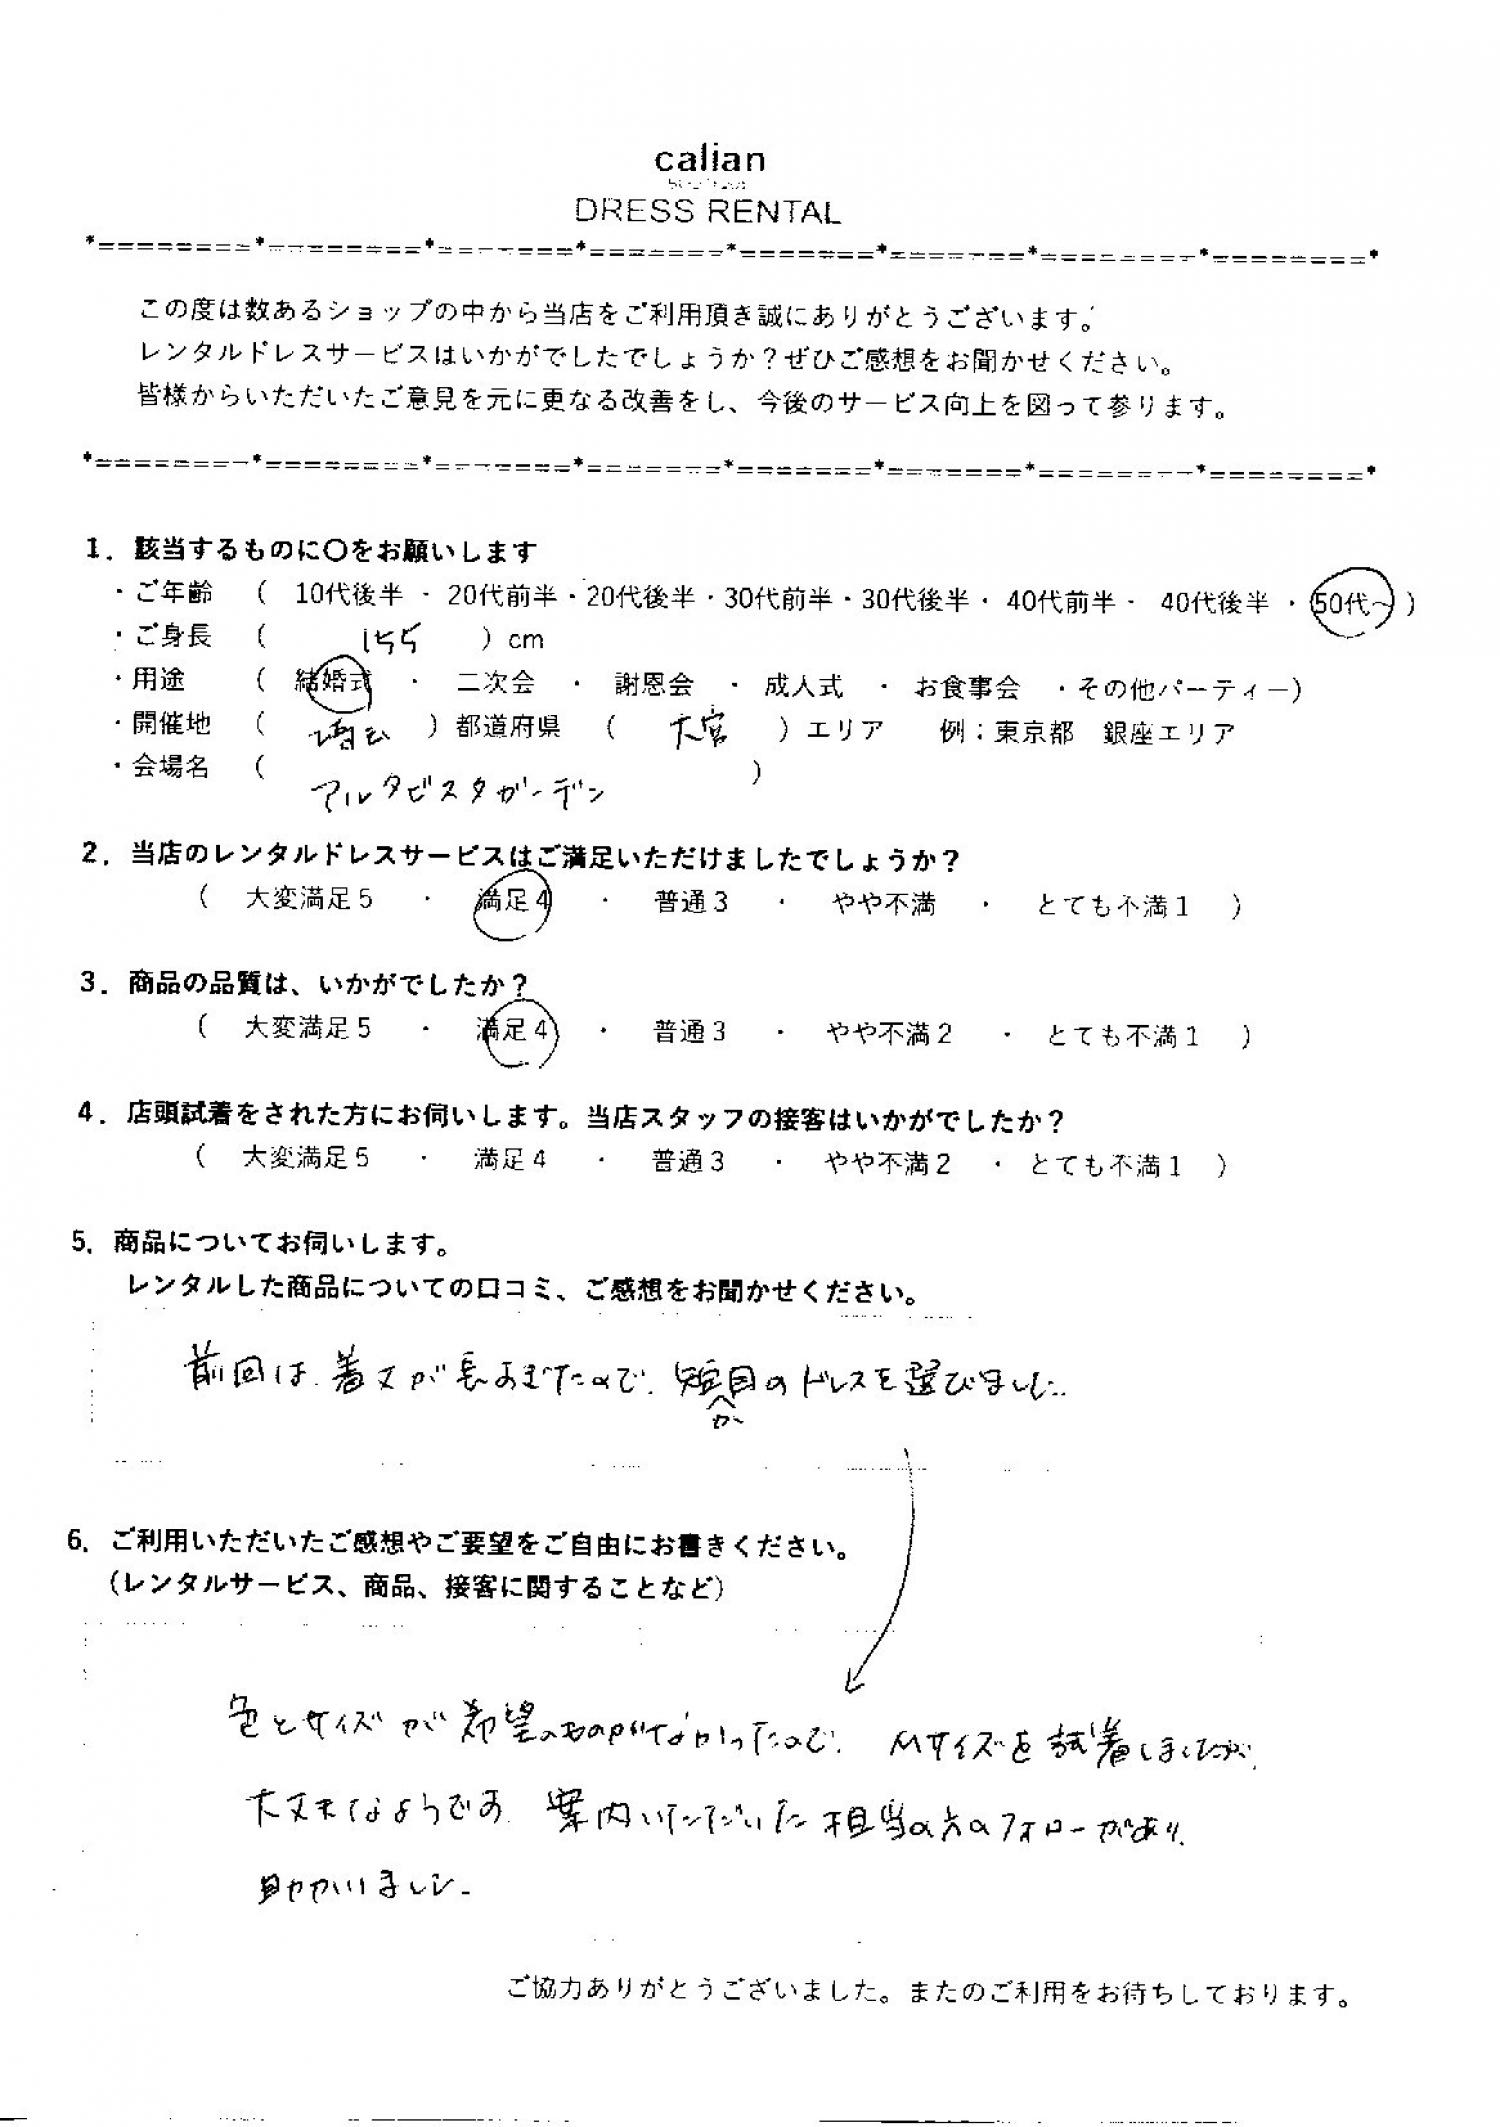 calian
DRESS RENTAL
*========*========*=======*=======*=======*=======*========*========*
この度は数あるショップの中から当店をご利用頂き誠にありがとうございます。
レンタルドレスサービスはいかがでしたでしょうか？ぜひご感想をお聞かせください。
皆様からいただいたご意見を元に更なる改善をし、今後のサービス向上を図って参ります。
*========*========*=======*=======*=======*=======*========*========*
1．該当するものに〇をお願いします
・ご年齢 （ 10代後半 ・ 20代前半・20代後半・30代前半・30代後半・ 40代前半・ 40代後半 ・50代～）
・ご身長 （ 155 ）cm
・用途 （ 結婚式 ・ 二次会 ・ 謝恩会 ・ 成人式 ・ お食事会 ・その他パーティー）
・開催地 （ 埼玉 ）都道府県 （ 大宮 ）エリア 例；東京都 銀座エリア
・会場名 （ アルタビスタガーデン ）
2．当店のレンタルドレスサービスはご満足いただけましたでしょうか？
（ 大変満足５ ・ 満足４ ・ 普通３ ・ やや不満 ・ とても不満１ ）
3．商品の品質は、いかがでしたか？
（ 大変満足５ ・ 満足４ ・ 普通３ ・ やや不満２ ・ とても不満１ ）
4．店頭試着をされた方にお伺いします。当店スタッフの接客はいかがでしたか？
（ 大変満足５ ・ 満足４ ・ 普通３ ・ やや不満２ ・ とても不満１ ）
5．商品についてお伺いします。
レンタルした商品についての口コミ、ご感想をお聞かせください。
前回は、着丈が長すぎたので、短か目のドレスを選びました。
6．ご利用いただいたご感想やご要望をご自由にお書きください。
（レンタルサービス、商品、接客に関することなど）
色とサイズが希望のものがなかったので、Mサイズを試着しましたが、
大丈夫なようです。案内いただいた担当の方のフォローがあり、
助かりました。
ご協力ありがとうございました。またのご利用をお待ちしております。